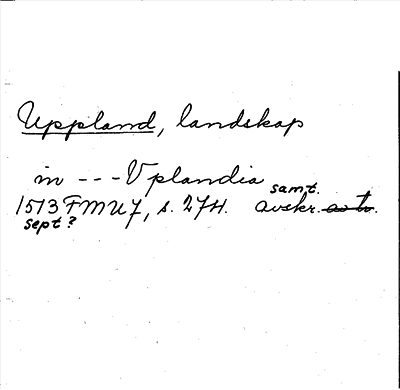 Uppland, landskap
in --- Vplandia
samt.
1513 FMU 7, s. 274. avskr.
sept?